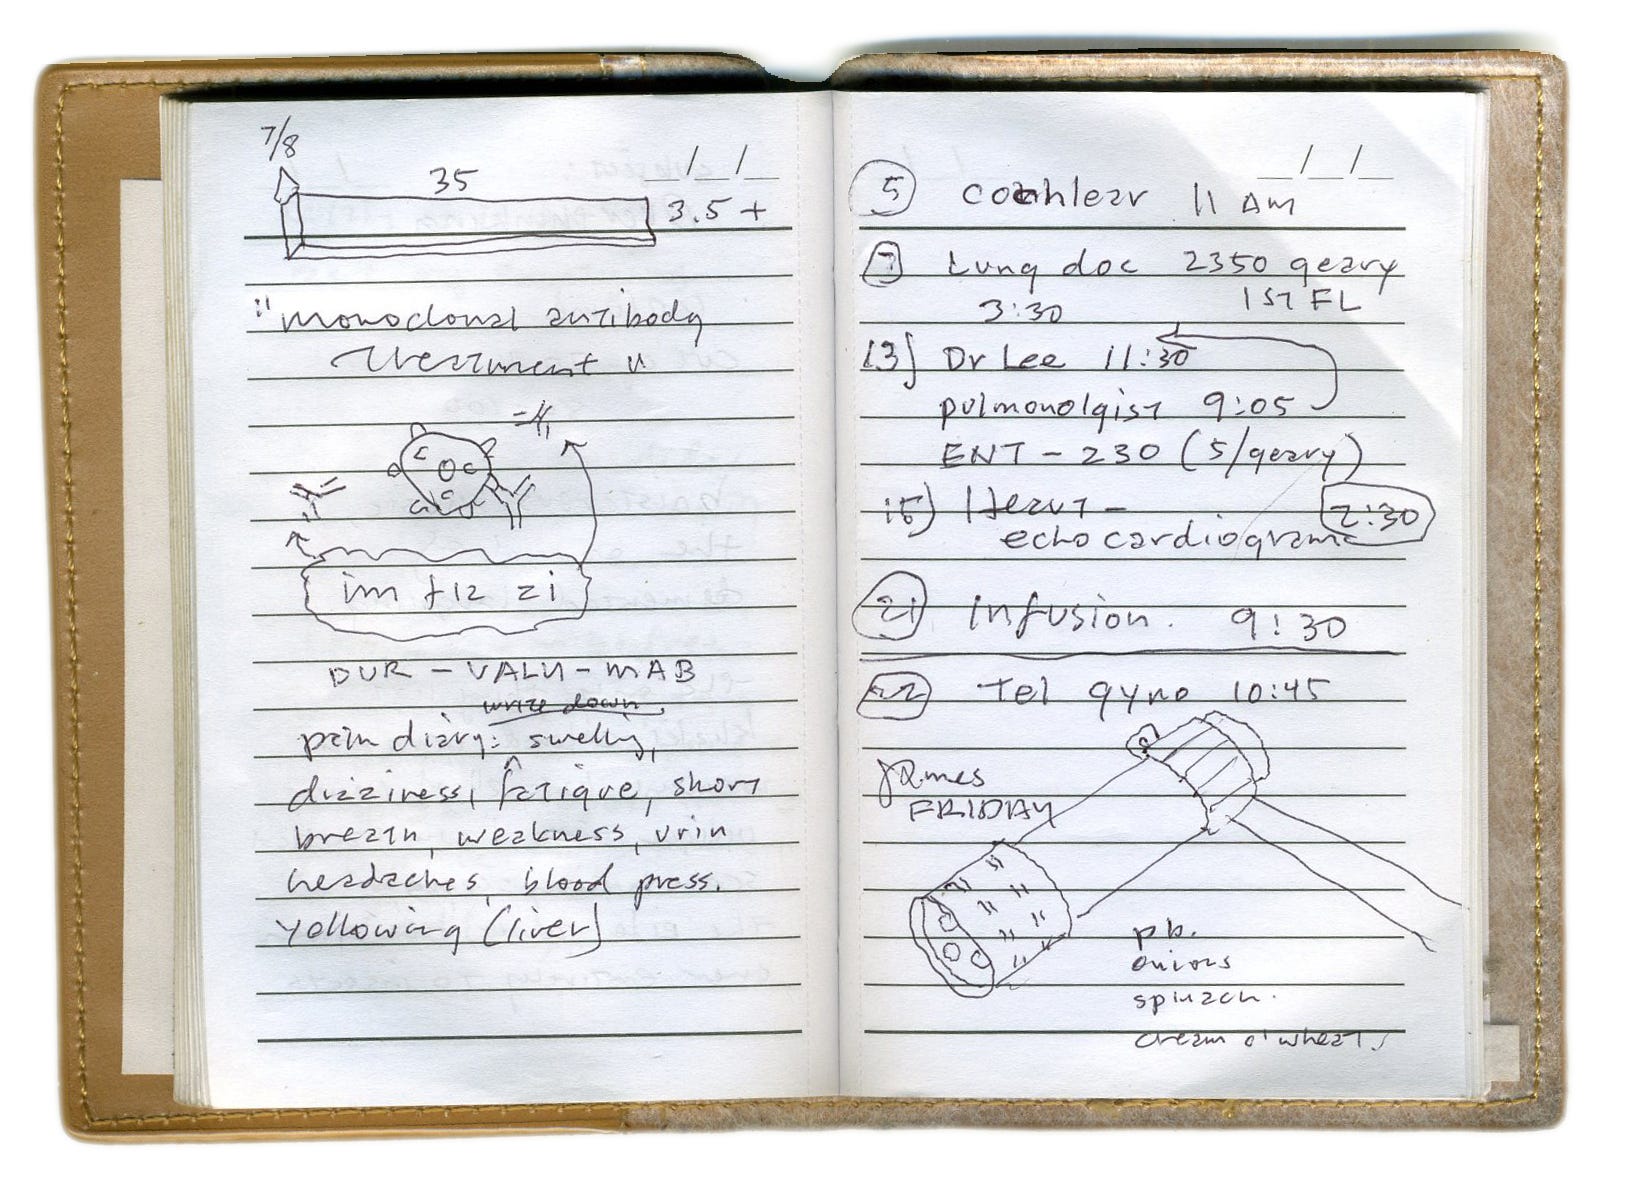 7/8
35
_/_/_
3.5 +
"monoclonal antibody
treatment"
imfizi
DUR - VALU - MAB
write down
pain diary: swelling,
dizziness, fatigue, short
breath, weakness, urin
headaches, blood press.
yellowing (liver)
_/_/_
5 cochlear 11 AM
7 Lung doc 2350 geary
3:30 1ST FL
13) Dr Lee 11:30
pulmonolgist 9:05
ENT - 230 (5/geary)
15) Heart -
echocardiogram 2:30
21 Infusion. 9:30
22 Tel gyno 10:45
James
FRIDAY
pb.
onions
spinach.
cream o' wheat